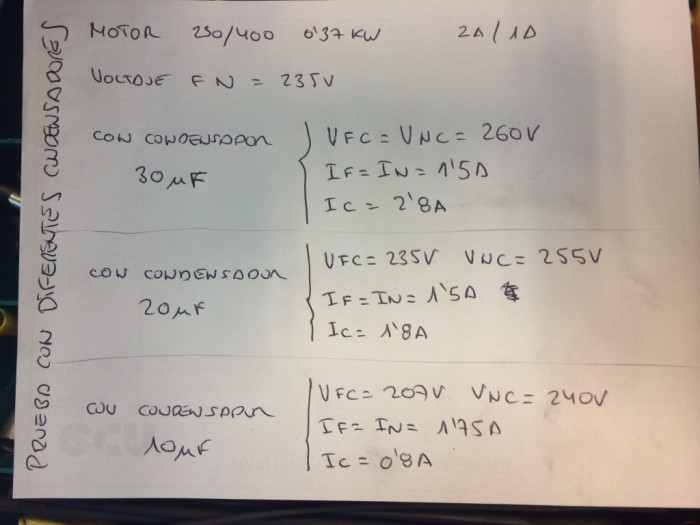 PRUEBA CON DIFERENTES CONDENSADORES
MOTOR 230/400 0'37 KW 2A / 1A
VOLTAJE FN = 235V
CON CONDENSADOR
30 µF
VFC = VNC = 260V
IF = IN = 1'5A
IC = 2'8A
CON CONDENSADOR
20 µF
VFC = 235V VNC = 255V
IF = IN = 1'5A
IC = 1'8A
CON CONDENSADOR
10 µF
VFC = 207V VNC = 240V
IF = IN = 1'75A
IC = 0'8A